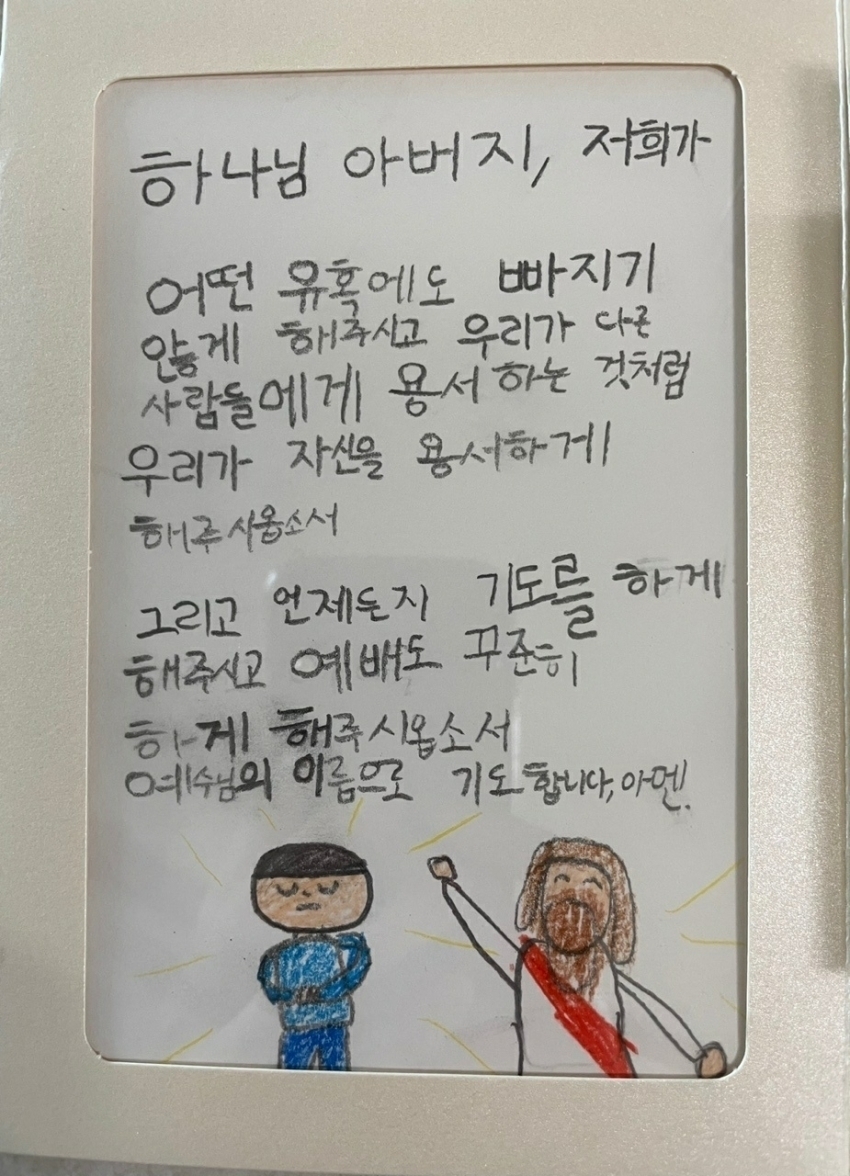 하나님 아버지, 저희가
어떤 유혹에도 빠지기
않게 해주시고 우리가 다른
사람들에게 용서 하는 것처럼
우리가 자신을 용서하게
해주사옵소서
그리고 언제든지 기도를 하게
해주시고 예배도 꾸준히
하게 해주시옵소서
예수님의 이름으로 기도합니다, 아멘!